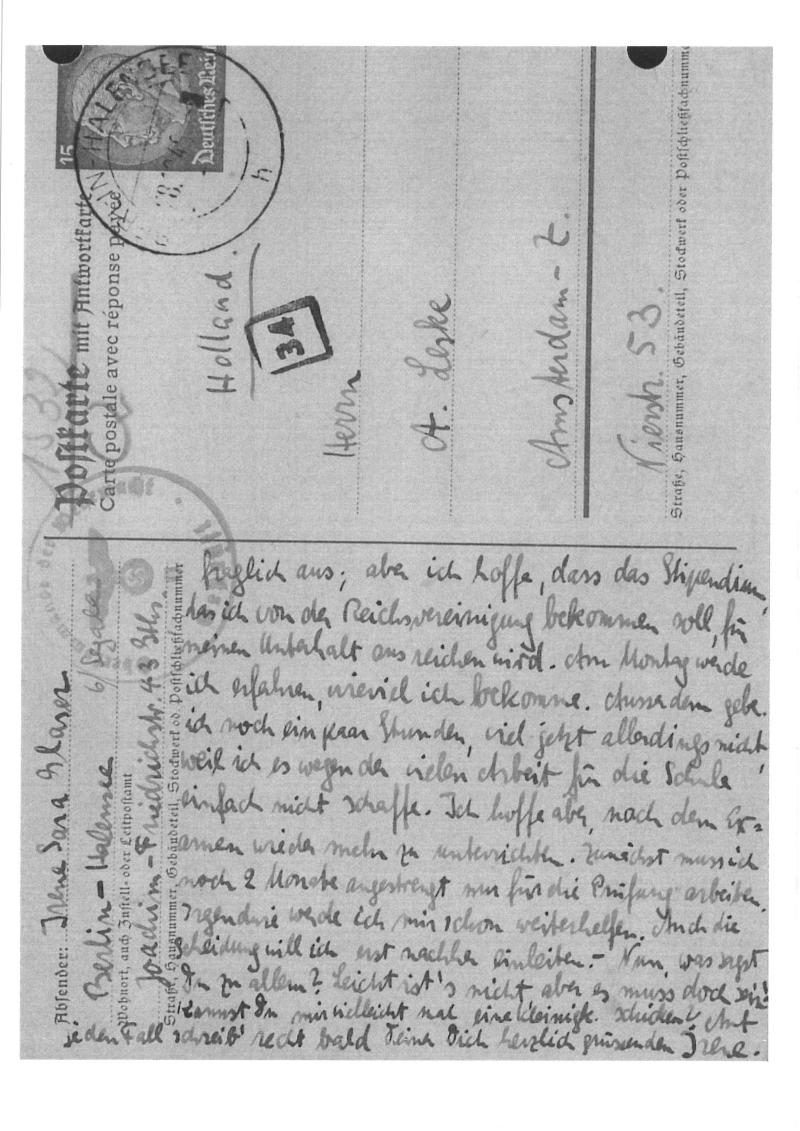 Postkarte mit Antwortkarte
Carte postale avec réponse payée
15
Deutsches Reich
BERLIN-HALENSEE
h
Holland.
34
Herrn
A. Leske
Amsterdam-Z.
Nierstr. 53.
Straße, Hausnummer, Gebäudeteil, Stockwerk oder Postschließfachnummer
Absender: Irene Sara Glaser
Berlin-Halensee
b/Segale
Wohnort, auch Zustell- oder Leitpostamt
Joachim-Friedrichstr. 43 Gths.
Straße, Hausnummer, Gebäudeteil, Stockwerk od. Postschließfachnummer
fraglich aus; aber ich hoffe, dass das Stipendium,
das ich von der Reichsvereinigung bekommen soll, für
meinen Unterhalt ausreichen wird. Am Montag werde
ich erfahren, wieviel ich bekomme. Ausserdem gebe
ich noch ein paar Stunden, viel jetzt allerdings nicht,
weil ich es wegen der vielen Arbeit für die Schule
einfach nicht schaffe. Ich hoffe aber, nach dem Ex-
amen wieder mehr zu unterrichten. Zunächst muss ich
noch 2 Monate angestrengt nur für die Prüfung arbeiten.
Irgendwie werde ich mir schon weiterhelfen. Auch die
Scheidung will ich erst nachher einleiten. - Nun, was sagst
Du zu allem? Leicht ist's nicht, aber es muss doch sein!
Kannst Du mir vielleicht mal eine Kleinigk. schicken? Auf
jeden Fall schreib' recht bald Deiner Dich herzlich grüssenden Irene.